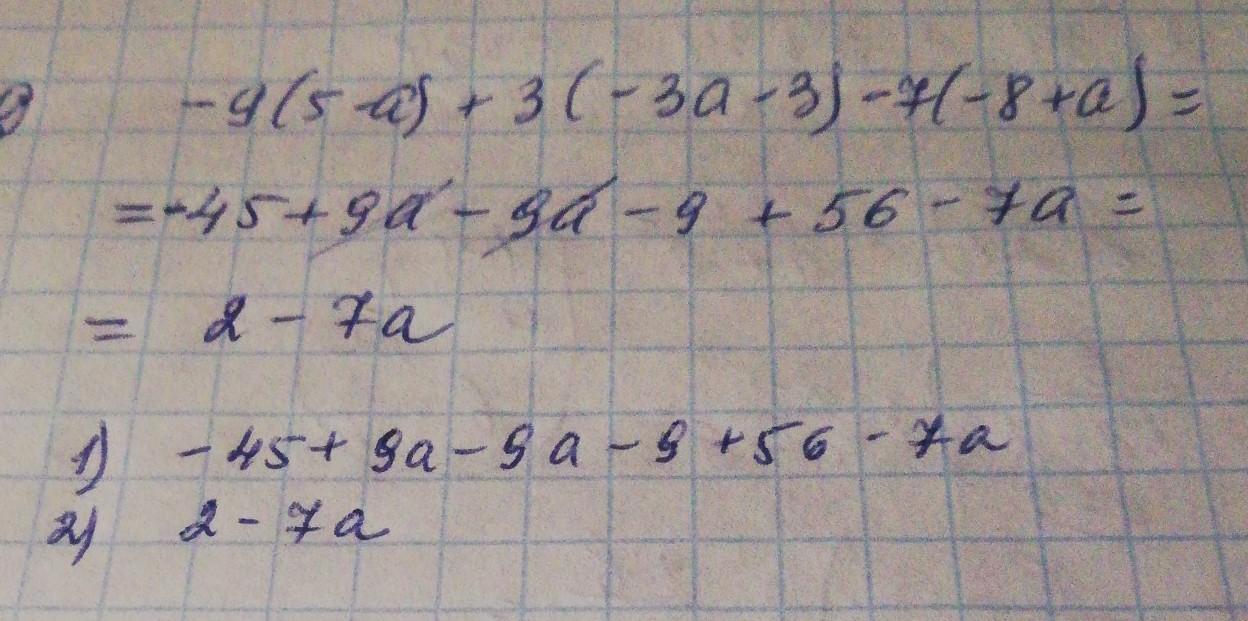 -9(5-a)+3(-3a-3)-7(-8+a)=
=-45+9a-9a-9+56-7a=
= 2-7a
1) -45+9a-9a-9+56-7a
2) 2-7a